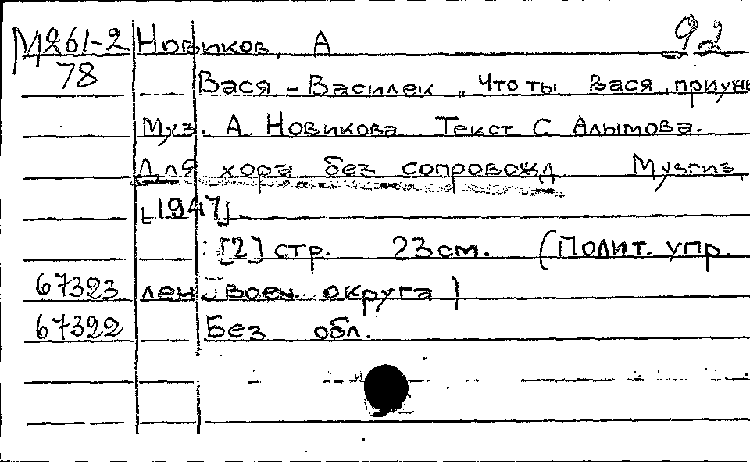 М261-2 Новиков, А 92
78 Вася-Василек „Что ты Вася, приуны
Муз. А. Новикова. Текст С. Алымова.
Для хора без сопровожд Музгиз,
[1947]
: [2] стр. 23 см. (Полит. упр.
67323 лен. воен. округа)
67322 Без обл.